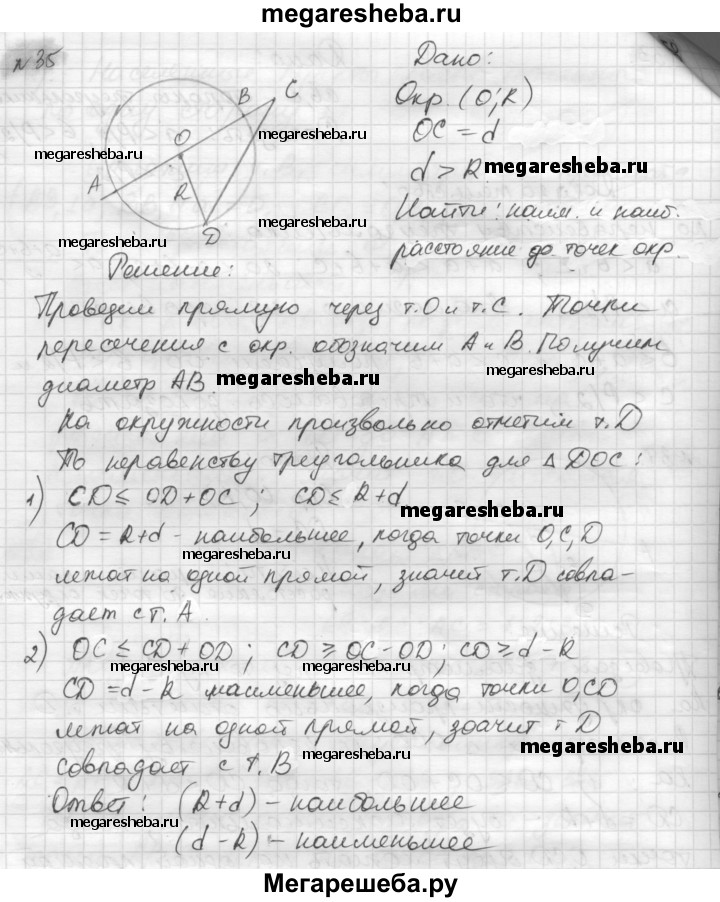 megaresheba.ru
№ 35
Дано:
Окр. (O; R)
OC = d
d > R megaresheba.ru
Найти: наим. и наиб.
расстояние до точек окр.
A
O
B
C
R
D
megaresheba.ru
megaresheba.ru
megaresheba.ru
megaresheba.ru
megaresheba.ru
Решение:
Проведем прямую через т. О и т. С. Точки
пересечения с окр. обозначим А и В. Получим
диаметр АВ. megaresheba.ru
На окружности произвольно отметим т. D
По неравенству треугольника для Δ DOC:
1) CD ≤ OD + OC ; CD ≤ R + d megaresheba.ru
CD = R + d - наибольшее, когда точки O, C, D
megaresheba.ru
лежат на одной прямой, значит т. D совпа-
megaresheba.ru
дает с т. А.
2) OC ≤ CD + OD ; CD ≥ OC - OD ; CD ≥ d - R
megaresheba.ru megaresheba.ru
CD = d - R наименьшее, когда точки O, CD
лежат на одной прямой, значит т D
megaresheba.ru
совпадает с т. В
Ответ: (R + d) - наибольшее
megaresheba.ru
(d - R) - наименьшее
megaresheba.ru
Мегарешеба.ру